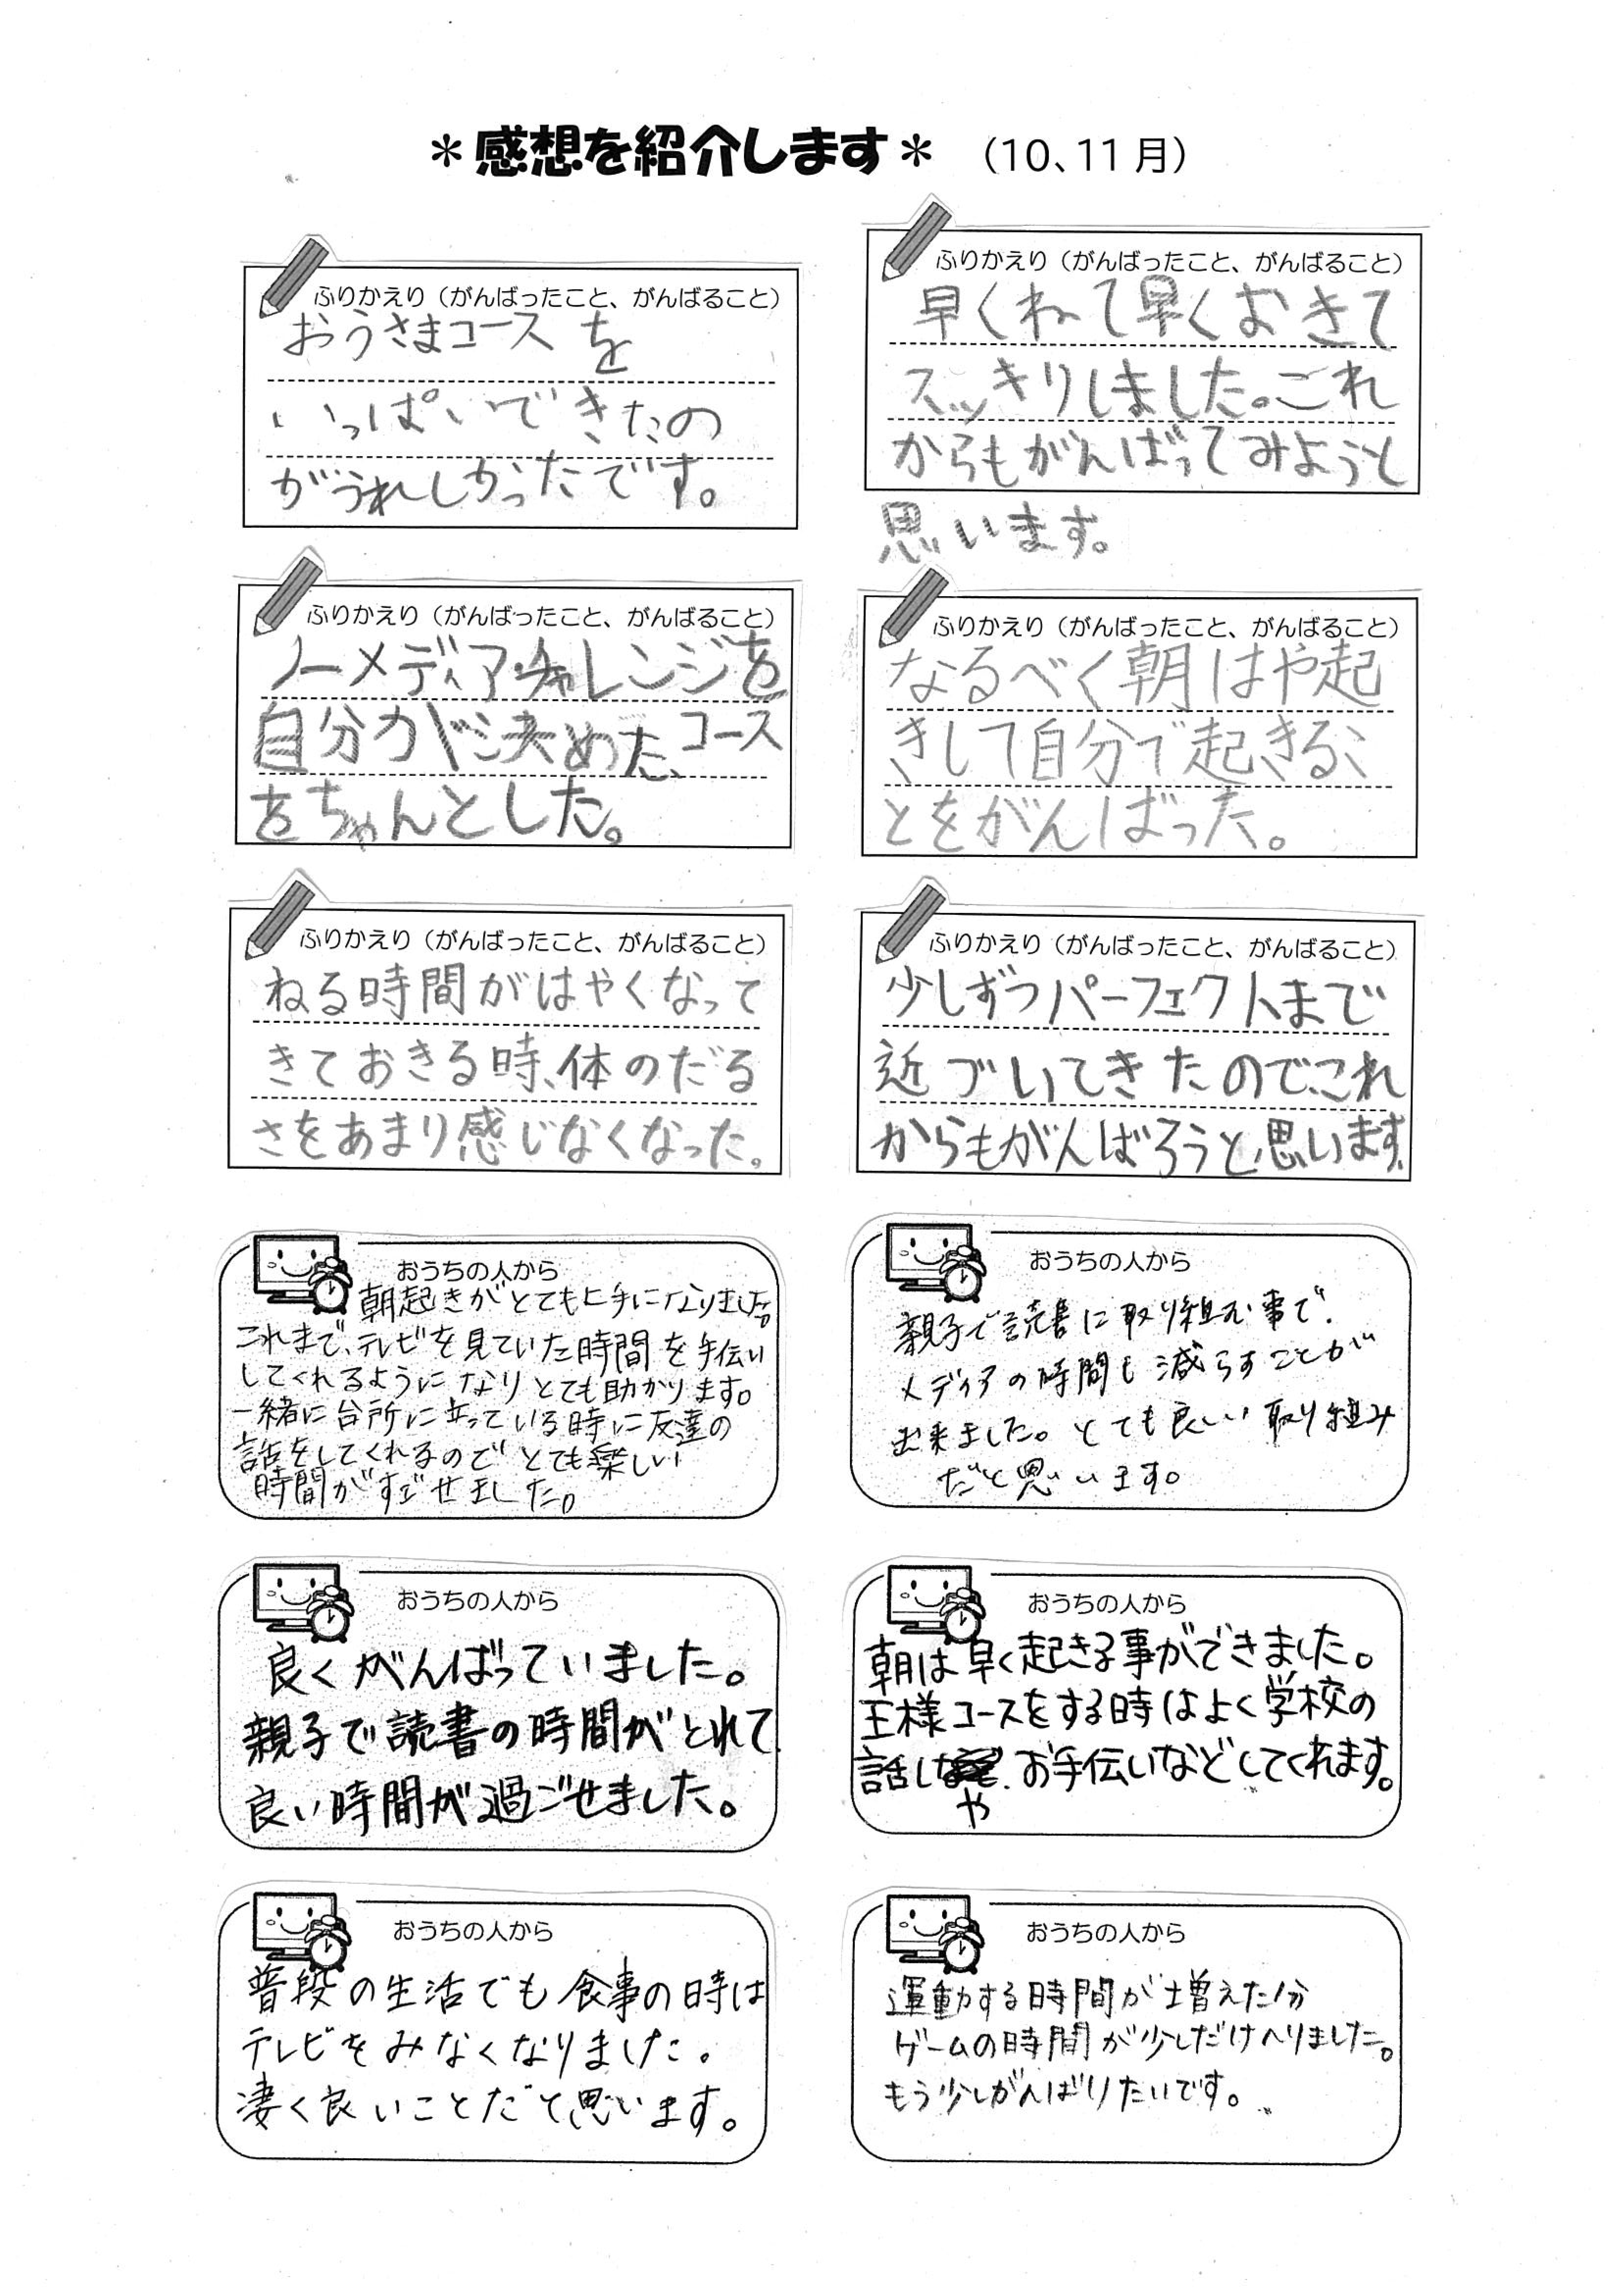 ＊感想を紹介します＊ （10、11月）
ふりかえり（がんばったこと、がんばること）
おうさまコースを
いっぱいできたの
がうれしかったです。
ふりかえり（がんばったこと、がんばること）
早くねて早くおきて
スッキリしました。これ
からもがんばってみようと
思います。
ふりかえり（がんばったこと、がんばること）
ノーメディアチャレンジを
自分がが決めた、コース
をちゃんとした。
ふりかえり（がんばったこと、がんばること）
なるべく朝はや起
きして自分で起きるこ
とをがんばった。
ふりかえり（がんばったこと、がんばること）
ねる時間がはやくなって
きておきる時、体のだる
さをあまり感じなくなった。
ふりかえり（がんばったこと、がんばること）
少しずつパーフェクトまで
近づいてきたので、これ
からもがんばろうと思います。
おうちの人から
朝起きがとても上手になりました。
これまで、テレビを見ていた時間を手伝い
してくれるようになりとても助かります。
一緒に台所に立っている時に友達の
話をしてくれるのでとても楽しい
時間がすごせました。
おうちの人から
親子で読書に取り組む事で、
メディアの時間も減らすことが
出来ました。とても良しい取り組み
だと思います。
おうちの人から
良くがんばっていました。
親子で読書の時間がとれて
良い時間が過ごせました。
おうちの人から
朝は早く起きる事ができました。
王様コースをする時はよく学校の
話しや お手伝いなどしてくれます。
おうちの人から
普段の生活でも食事の時は
テレビをみなくなりました。
凄く良いことだと思います。
おうちの人から
運動する時間が増えた分
ゲームの時間が少しだけへりました。
もう少しがんばりたいです。